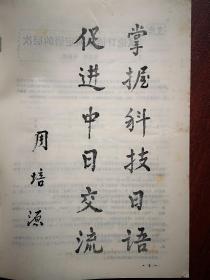 掌握科技日语
促进中日交流
周培源
- 1 -